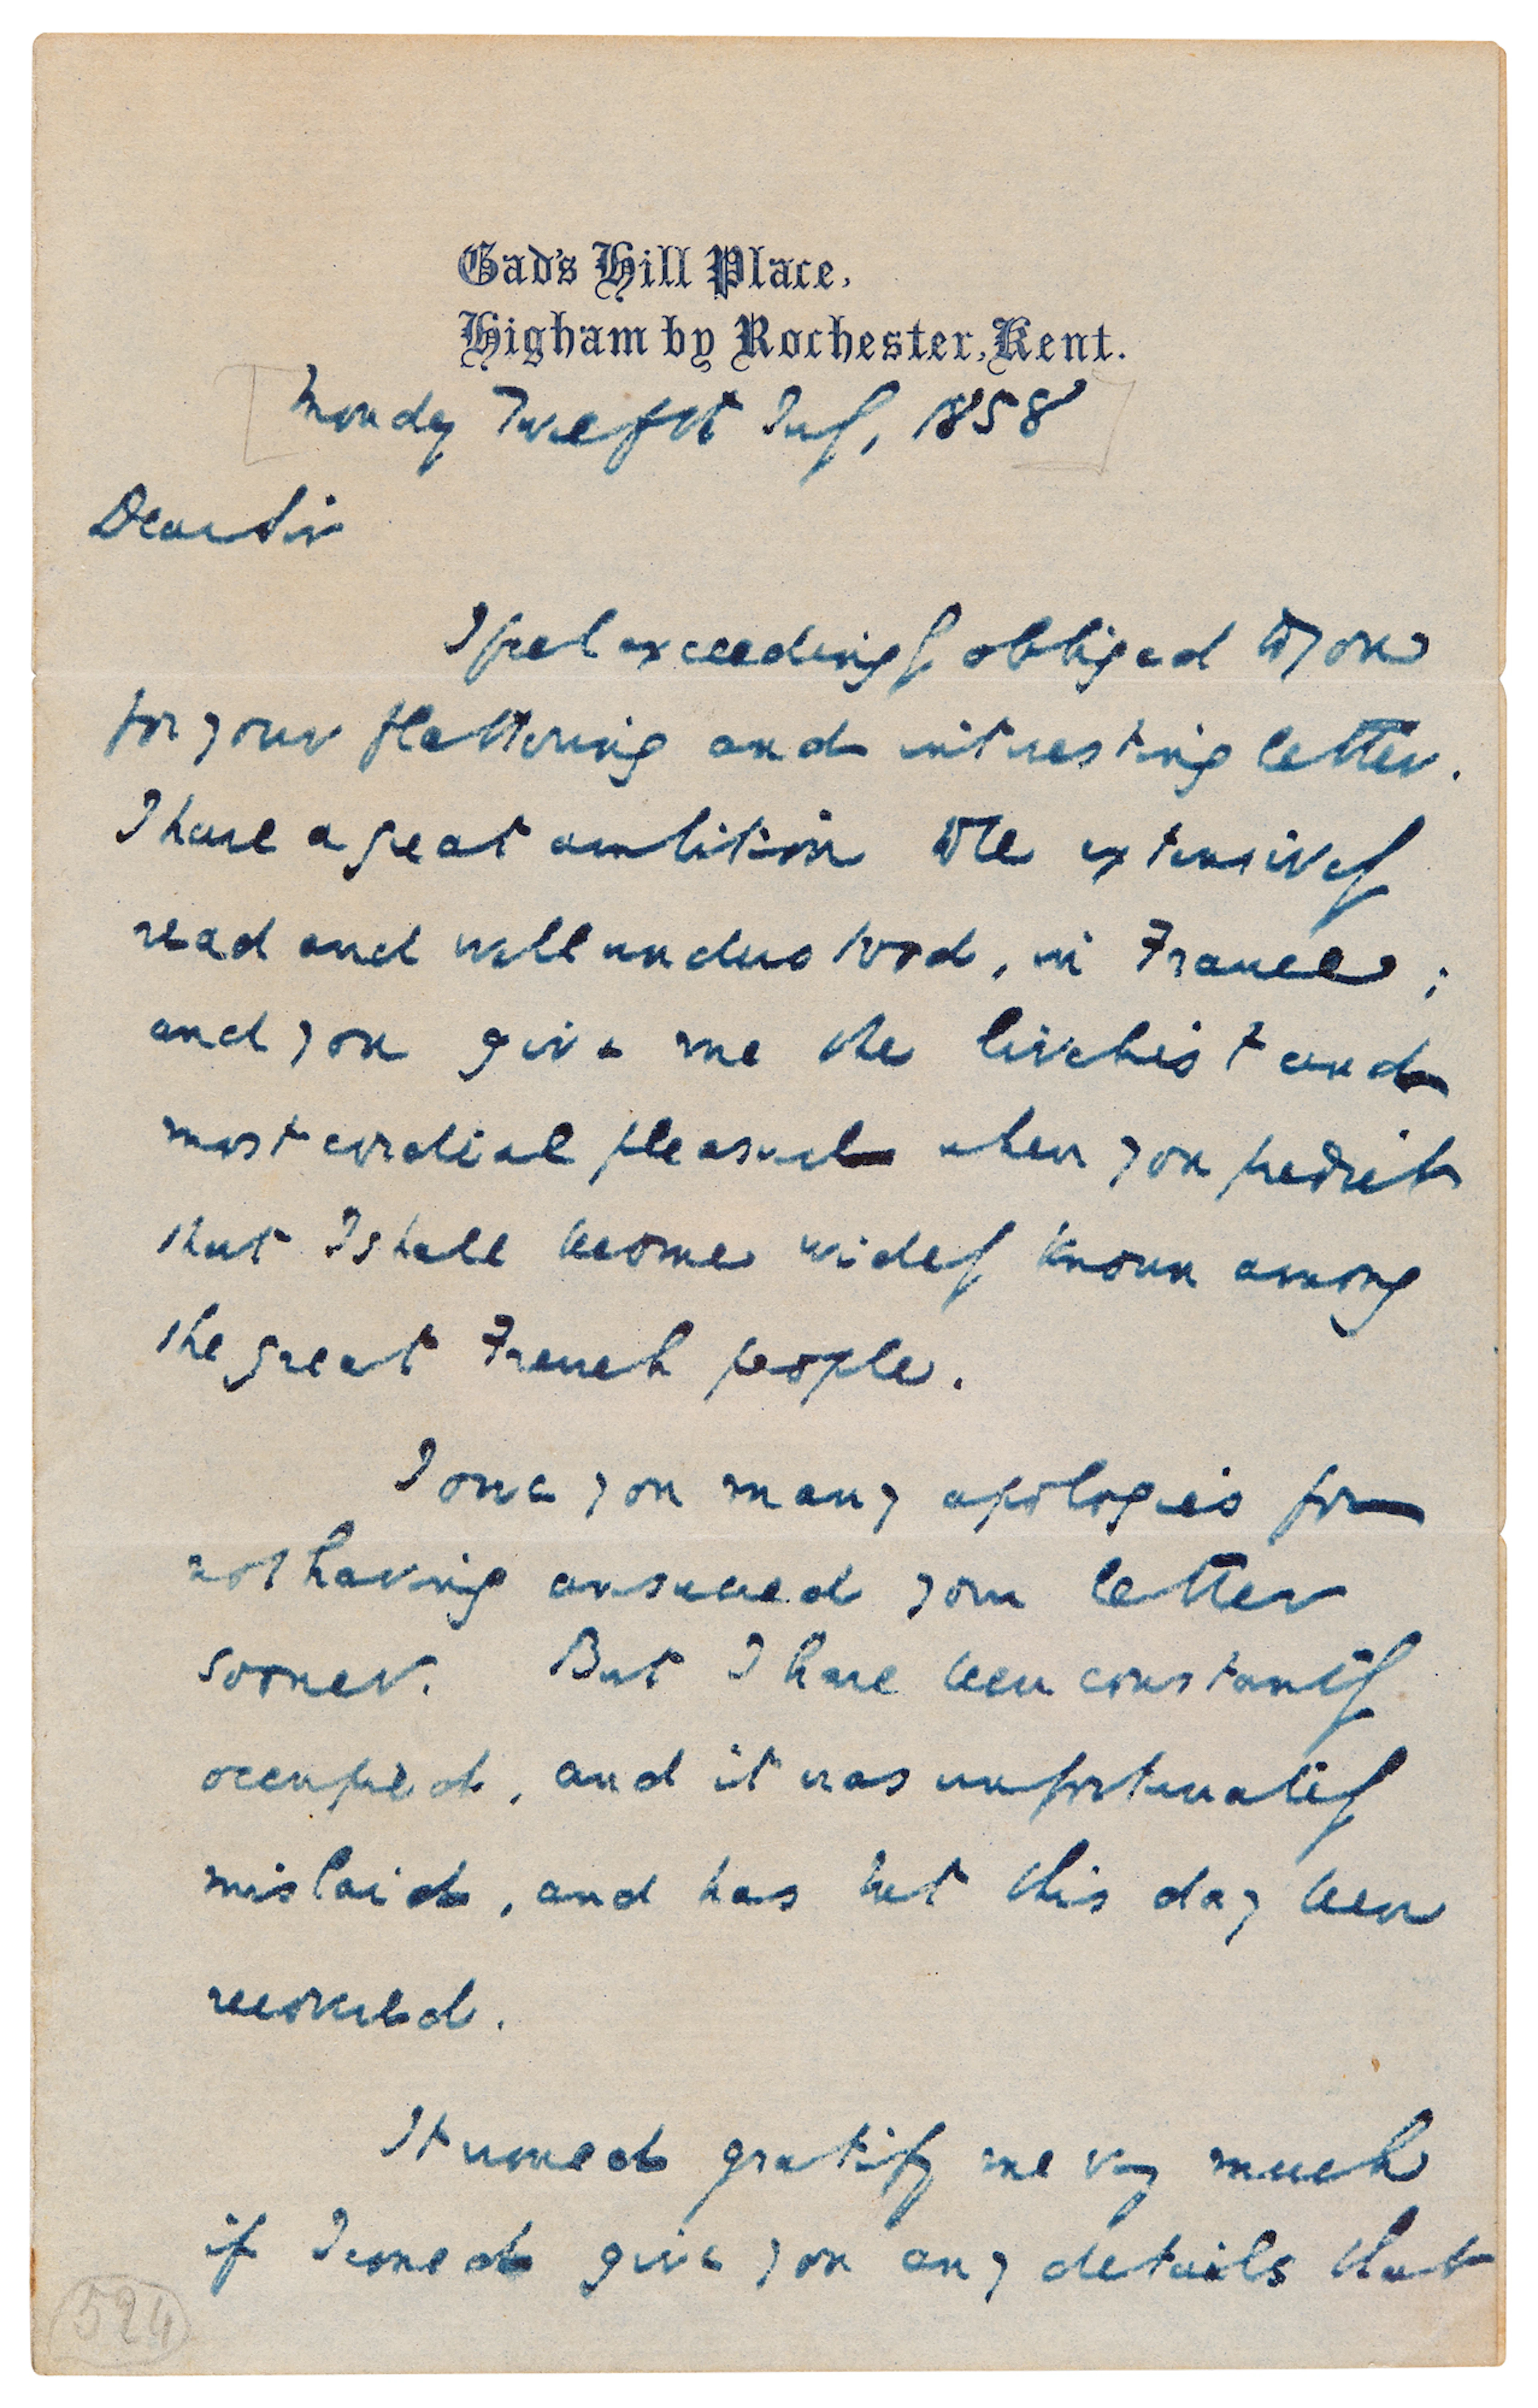 Gad's Hill Place,
Higham by Rochester, Kent.
Monday Twelfth July, 1858
Dear Sir
I feel exceedingly obliged to you
for your flattering and interesting letter.
I have a great ambition to be extensively
read and well understood, in France;
and you give me the liveliest and
most cordial pleasure when you predict
that I shall become widely known among
the great French people.
I owe you many apologies for
not having answered your letter
sooner. But I have been constantly
occupied, and it was unfortunately
mislaid, and has but this day been
recovered.
It would gratify me very much
if I could give you any details that
524